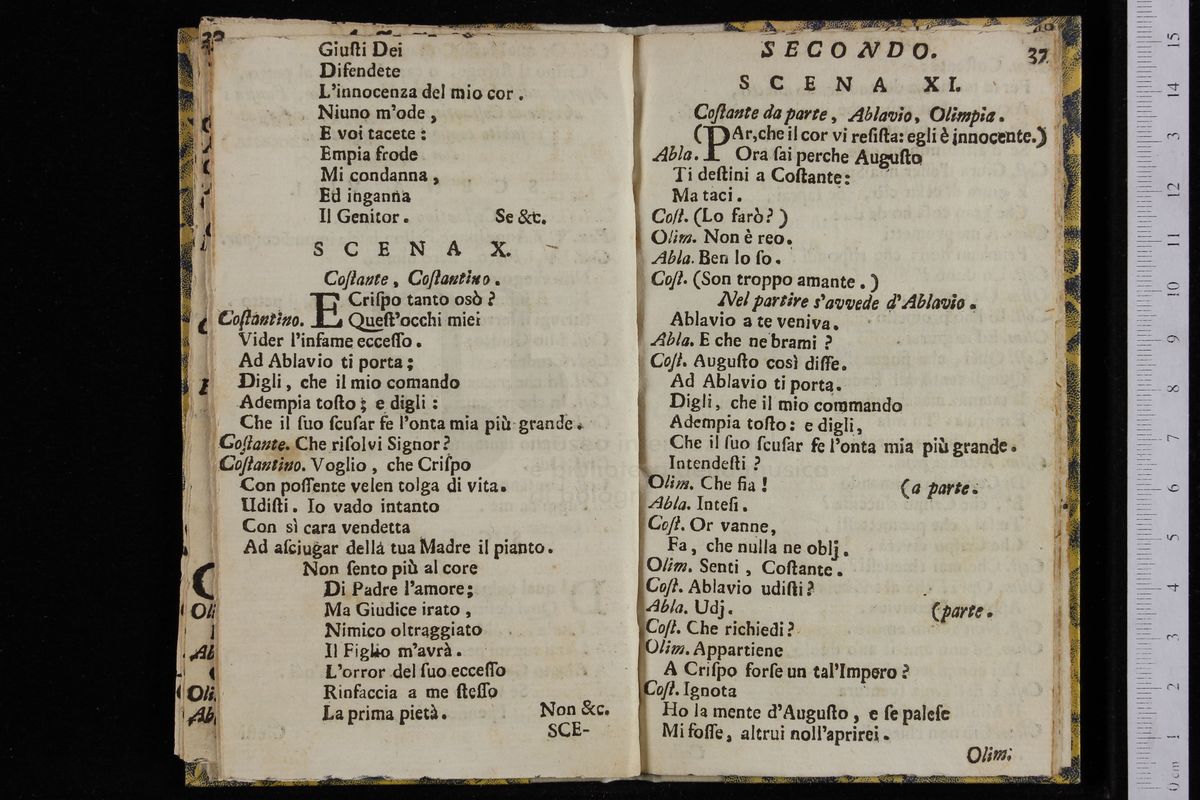 Giuſti Dei
Difendete
L'innocenza del mio cor.
Niuno m'ode,
E voi tacete:
Empia frode
Mi condanna,
Ed inganna
Il Genitor. Se &c.
SCENA X.
Coſtante, Coſtantino.
E Criſpo tanto osò?
Coſtantino. Queſt'occhi miei
Vider l'infame ecceſſo.
Ad Ablavio ti porta;
Digli, che il mio comando
Adempia toſto; e digli:
Che il ſuo ſcuſar fe l'onta mia più grande.
Coſtante. Che riſolvi Signor?
Coſtantino. Voglio, che Criſpo
Con poſſente velen tolga di vita.
Udiſti. Io vado intanto
Con sì cara vendetta
Ad aſciugar della tua Madre il pianto.
Non ſento più al core
Di Padre l'amore;
Ma Giudice irato,
Nimico oltraggiato
Il Figlio m'avrà.
L'orror del ſuo ecceſſo
Rinfaccia a me ſteſſo
La prima pietà. Non &c.
SCE-
SECONDO. 37
SCENA XI.
Coſtante da parte, Ablavio, Olimpia.
(PAr, che il cor vi reſiſta: egli è innocente.)
Abla. Ora ſai perche Auguſto
Ti deſtini a Coſtante:
Ma taci.
Coſt. (Lo farò?)
Olim. Non è reo.
Abla. Ben lo ſo.
Coſt. (Son troppo amante.)
Nel partire s'avvede d'Ablavio.
Ablavio a te veniva.
Abla. E che ne brami?
Coſt. Auguſto così diſſe.
Ad Ablavio ti porta.
Digli, che il mio commando
Adempia toſto: e digli,
Che il ſuo ſcuſar fe l'onta mia più grande.
Intendeſti?
Olim. Che fia! (a parte.
Abla. Inteſi.
Coſt. Or vanne,
Fa, che nulla ne oblj.
Olim. Senti, Coſtante.
Coſt. Ablavio udiſti?
Abla. Udj. (parte.
Coſt. Che richiedi?
Olim. Appartiene
A Criſpo forſe un tal'Impero?
Coſt. Ignota
Ho la mente d'Auguſto, e ſe paleſe
Mi foſſe, altrui noll'aprirei.
Olim.